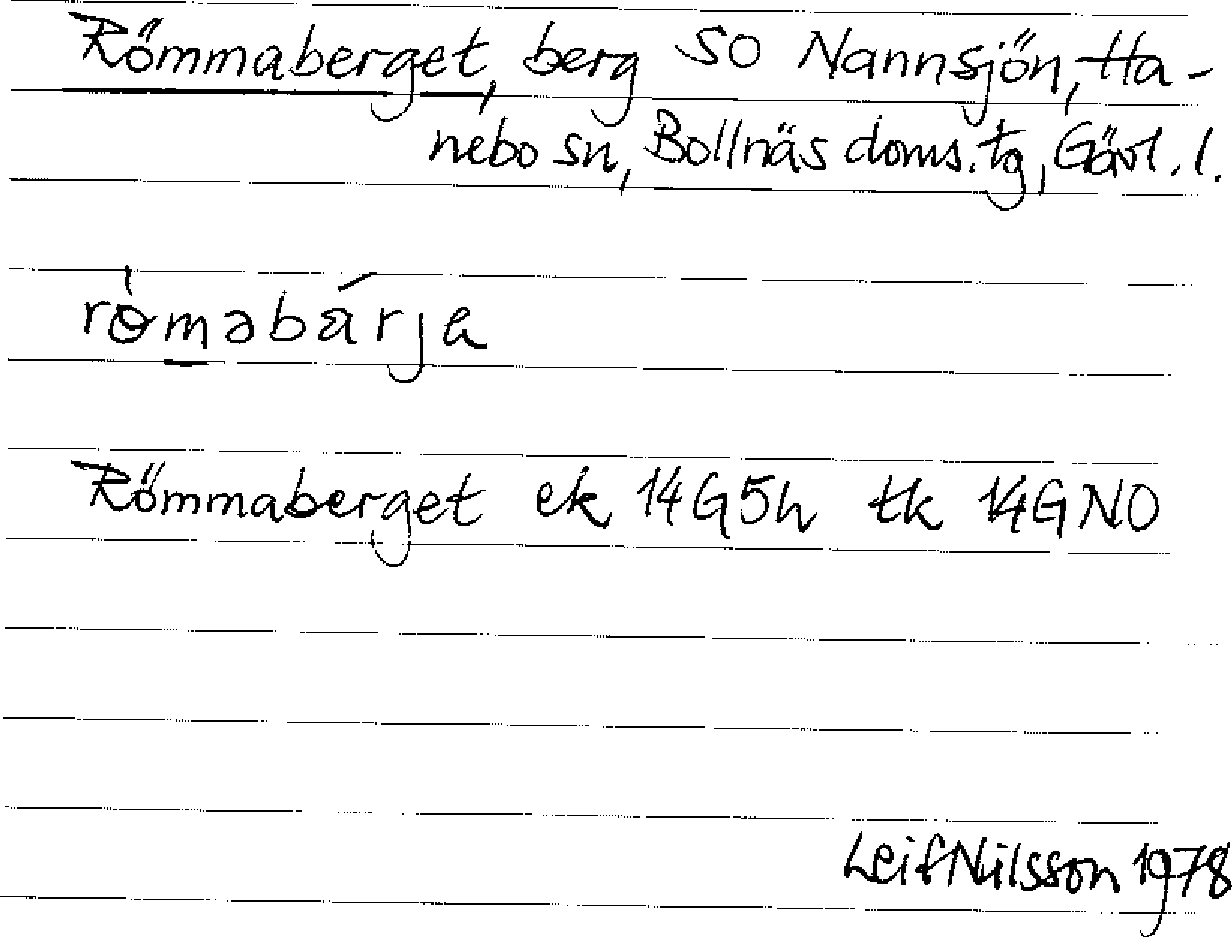 Römmaberget, berg SO Nannsjön, Ha-
nebo sn, Bollnäs doms.tg, Gävl. l.
rò̵m̲əbárja
Römmaberget ek 14G5h tk 14GNO
Leif Nilsson 1978